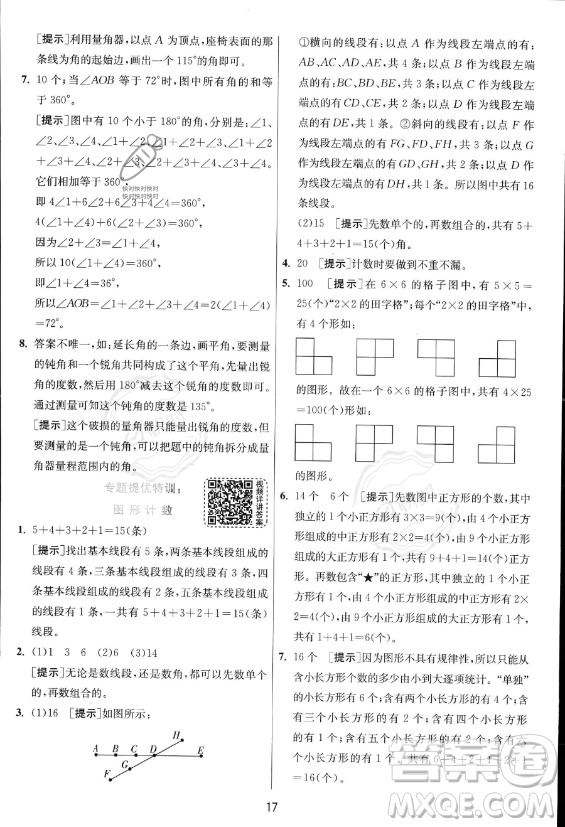 [提示]利用量角器,以点 A 为顶点,座椅表面的那
条线为角的起始边,画出一个 115°的角即可。
7. 10 个;当∠AOB 等于 72°时,图中所有角的和等
于 360°。
[提示]图中有 10 个小于 180°的角,分别是:∠1、
∠2、∠3、∠4、∠1+∠2、∠2+∠3、∠3+∠4、
∠1+∠2+∠3、∠2+∠3+∠4、∠1+∠2+∠3+∠4。
它们相加等于 360°。
即 4∠1+6∠2+6∠3+4∠4=360°
4(∠1+∠2+∠3+∠4)+2(∠2+∠3)=360°
因为∠2+∠3=∠1+∠4
所以 10(∠1+∠4)=360°
即∠1+∠4=36°,
所以∠AOB=∠1+∠2+∠3+∠4=2(∠1+∠4)
=72°。
8. 答案不唯一,如:延长角的一条边,要测量
的钝角和一个锐角共同构成了这个平角,先量出
锐角的度数,然后用 180°减去这个锐角的度数即可。
通过测量可知这个钝角的度数是 135°。
[提示]破损的量角器只能量出锐角的度数,而
要测量的是一个钝角,可以把题中的钝角拆分成量
角器量程范围内的角。
专题提优特训:
图形计数
视频讲解答案
1. 5+4+3+2+1=15(条)
[提示]找出基本线段有 5 条,两条基本线段组成的
有 4 条,三条基本线段组成的线段有 3 条,四条基
本线段组成的有 2 条,一共有 5+4+3+2+1=15(条)
线段。
2. (1)1 3 6 (2)6 (3)14
[提示]无论是数线段,还是数角,都要先数单个
的,再数组合的。
3. (1)16 [提示]如图所示:
H
A B C D E
F G
①横向的线段有:以点 A 作为线段左端点的有
AB、AC、AD、AE,共 4 条;以点 B 作为线段左端
点的有 BC、BD、BE,共 3 条;以点 C 作为线段左
端点的有 CD、CE,共 2 条;以点 D 作为线段左端
点的有 DE,共 1 条。②斜向的线段有:以点 F 作
为线段左端点的有 FG、FD、FH,共 3 条;以点 G
作为线段左端点的有 GD、GH,共 2 条;以点 D 作
为线段左端点的有 DH,共 1 条。图中共有 16
条线段。
(2)15 [提示]先数单个的,再数组合的,共有 5
+4+3+2+1=15(个)角。
4. 20 [提示]计数时要做到不重不漏。
5. 100 [提示]在 6×6 的格子图中,有 5×5=
25(个)“2×2 的田字格”;每个“2×2 的田字格”中,
有 4 个形如:
的图形。故在一个 6×6 的格子图中,共有 4×25
=100(个)形如:
的图形。
6. 14 个 6 个 [提示]先数图中正方形的个数,其中
独立的 1 个小正方形有 3×3=9(个),由 4 个小正方
形组成的大正方形有 4 个,由 9 个小正方形组成的
大正方形有 1 个,共有 9+4+1=14(个)正方
形。再数包含“★”的正方形,其中独立的 1 个小正
方形有 1 个,由 4 个小正方形组成的大正方形有 2×
2=4(个),由 9 个小正方形组成的大正方形有 1
个,共有 1+4+1=6(个)。
7. 16 个 [提示]因为图形不具有规律性,所以可以按
含小长方形个数的多少由小到大逐项统计。“单独”
的小长方形有 6 个,含有两个小长方形的有 4 个,含
有三个小长方形的有 2 个,含有四个小长方形的有
1 个,含有五个小长方形的有 2 个,含有六个小长
方形的有 1 个,因此图中共有 6+4+2+1+2+1
=16(个)。
17
答案圈
MXQE.COM